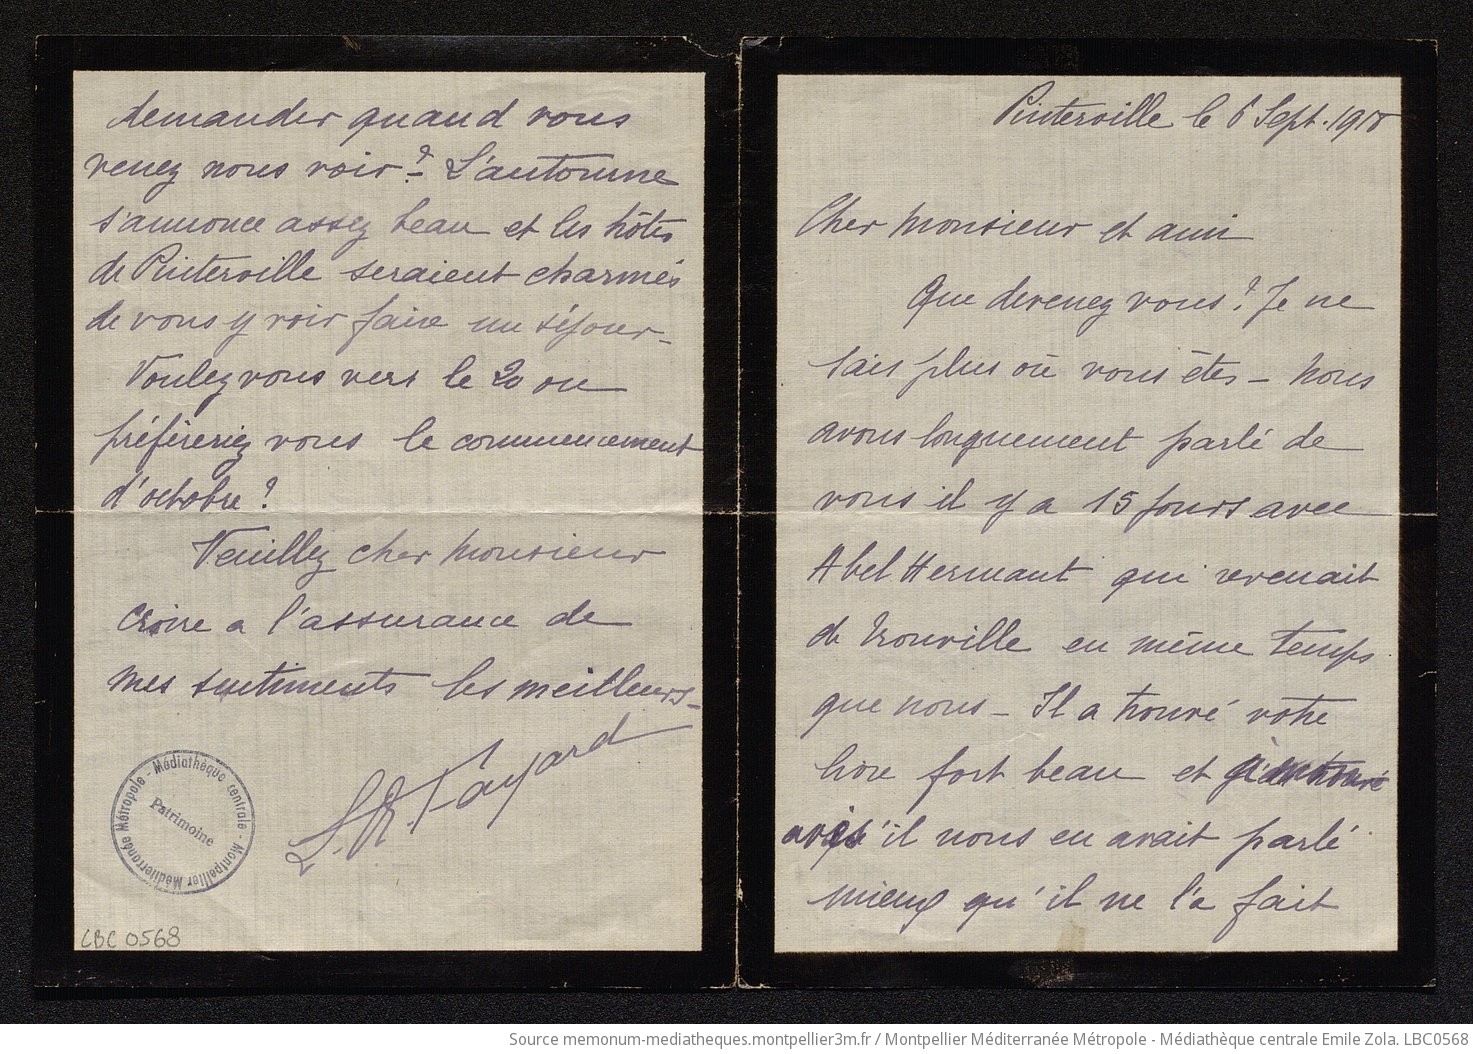 Pinterville le 6 Sept. 1910
Cher Monsieur et ami
Que devenez vous? Je ne
sais plus où vous êtes – Nous
avons longuement parlé de
vous il y a 15 jours avec
Abel Hermant qui revenait
de Trouville en même temps
que nous – Il a trouvé votre
livre fort beau et
qu'il nous en avait parlé
mieux qu'il ne l'a fait
demander quand vous
venez nous voir? – L'automne
s'annonce assez beau et les hôtes
de Pinterville seraient charmés
de vous y voir faire un séjour –
Voulez vous vers le 20 ou
préfèreriez vous le commencement
d'octobre?
Veuillez cher Monsieur
croire a l'assurance de
mes sentiments les meilleurs –
Fayard
Médiathèque centrale - Montpellier Méditerranée Métropole -
Patrimoine
LBC 0568
Source memonum-mediatheques.montpellier3m.fr / Montpellier Méditerranée Métropole - Médiathèque centrale Emile Zola. LBC0568